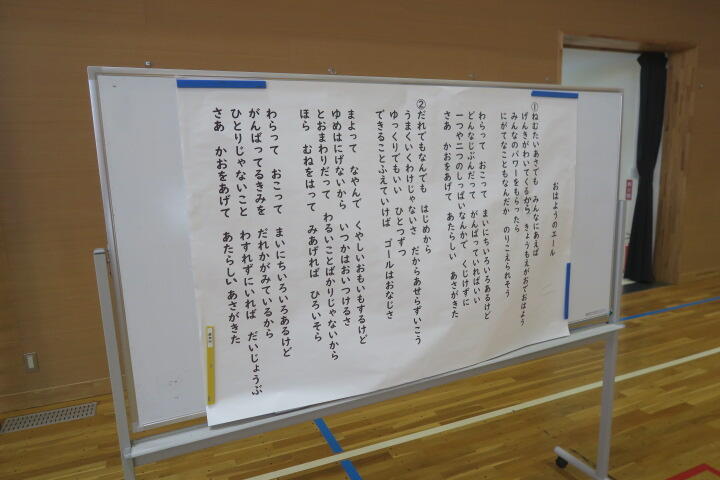 おはようのエール
①ねむたいあさでも　みんなにあえば
げんきがわいてくるから　きょうもえがおでおはよう
みんなのパワーをもらったら
にがてなこともなんだか　のりこえられそう
わらって　おこって　まいにちいろいろあるけど
どんなじぶんだって　がんばっていればいい
一つや二つのしっぱいなんかで　くじけずに
さあ　かおをあげて　あたらしい　あさがきた
②だれでもなんでも　はじめから
うまくいくわけじゃないさ　だからあせらずいこう
ゆっくりでもいい　ひとつずつ
できることふえていけば　ゴールはおなじさ
まよって　なやんで　くやしいおもいもするけど
ゆめはにげないから　いつかはおいつけるさ
とおまわりだって　わるいことばかりじゃないから
ほら　むねをはって　みあげれば　ひろいそら
わらって　おこって　まいにちいろいろあるけど
がんばってるきみを　だれかがみているから
ひとりじゃないこと　わすれずにいれば　だいじょうぶ
さあ　かおをあげて　あたらしい　あさがきた